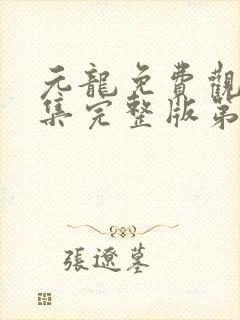 元龍免費觀
集完整版第
張遼墓